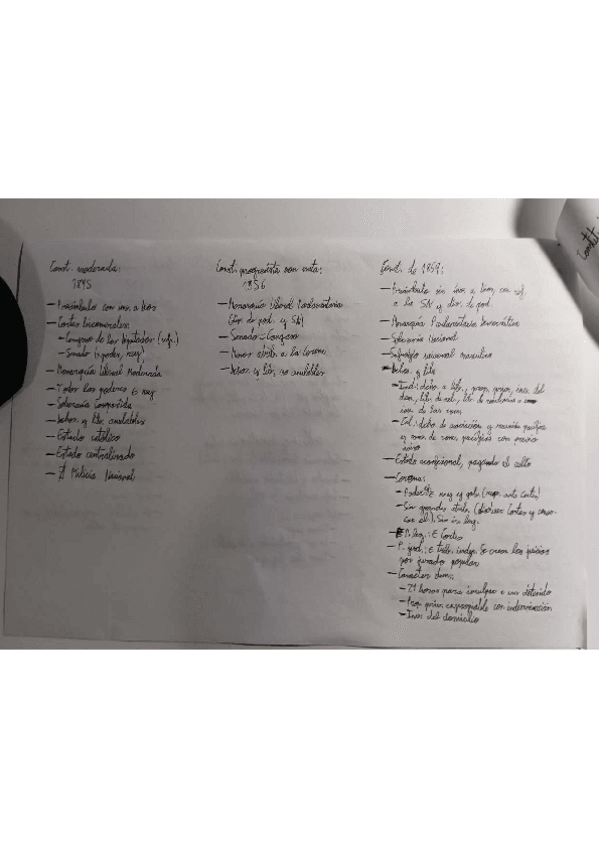 Const. moderada:
1845
— Preámbulo con inv. a Dios
— Cortes bicamerales
— Congreso de los Diputados (suf.)
— Senado
— Monarquía liberal Moderada
— Todos los poderes E rey
— Soberanía Compartida
— Dchos. y lib. anulables
— Estado católico
— Estado centralizado
— ∄ Milicia Nacional
Const. progresista non nata:
1856
— Monarquía liberal Parlamentaria
(div. de pod. y SN)
— Senado = Congreso
— Menos atrib. a la Corona
— Dchos. y lib. no anulables
Const. de 1869:
— Preámbulo sin inv. a Dios, con ref.
a la SN y div. de pod.
— Monarquía Parlamentaria Democrática
— Soberanía Nacional
— Sufragio universal masculino
— Dchos. y libs
— Ind.: dcho. a lib. y prop. priv., inv. del
dom., lib. de rel., lib. de
— Col.: dcho de asociación y reunión pacífica
y man. de pacífica con previo
aviso
— Estado aconfesional, pagando el culto
— Corona:
— Poder E: rey y gob. (resp. ante Cortes)
— Sin grandes atrib. (disolver Cortes y
) Sin in. leg.
— P. leg.: E Cortes
— P. jud.: E trib. indep. Se crean los juicios
por jurado popular
— Carácter dem.:
— 24 horas para inculpar a un detenido
— Prop. priv. expropiable con indemnización
— Inv. del domicilio